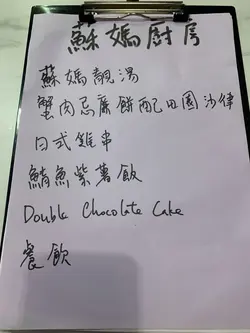 蘇媽廚房
蘇媽靚湯
蟹肉忌廉餅配田園沙律
日式雞串
鯖魚紫薯飯
Double Chocolate Cake
餐飲